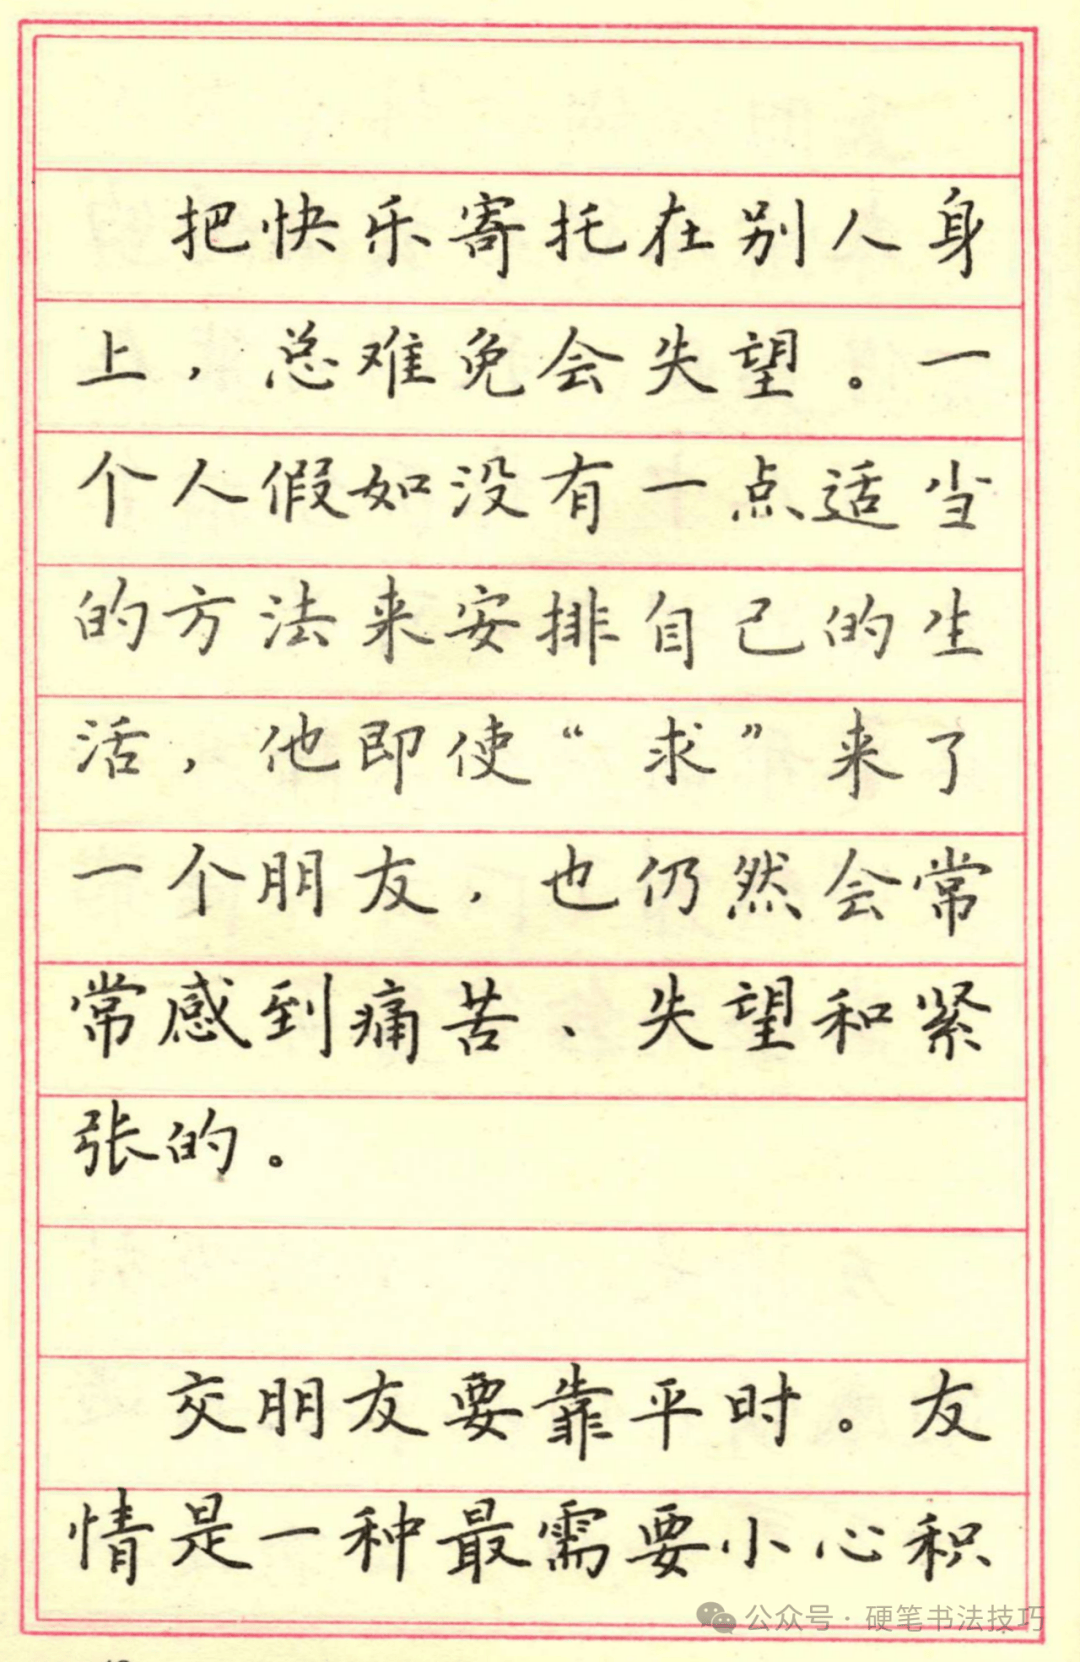 把快乐寄托在别人身
上，总难免会失望。一
个人假如没有一点适当
的方法来安排自己的生
活，他即使“求”来了
一个朋友，也仍然会常
常感到痛苦、失望和紧
张的。
交朋友要靠平时。友
情是一种最需要小心积
公众号·硬笔书法技巧